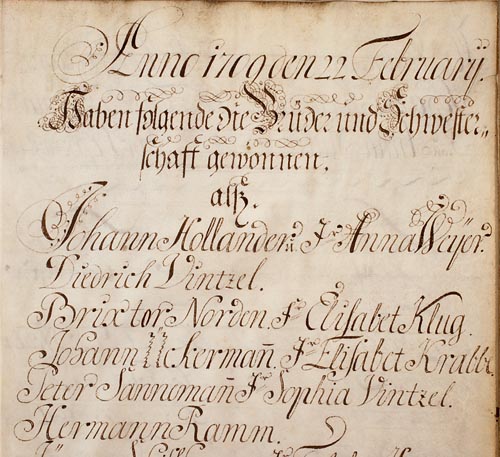 Anno 1709 den 22 February.
Haben folgende die Brüder und Schwester„
schafft gewonnen.
alß.
Johann Hollander. Jfr Anna Weyer.
Diedrich Vintzel.
Brixtor Norden. Jfr Elisabet Klug.
Johann Ückermañ. Jfr Elisabet Krabbe
Peter Sannomañ Jfr Sophia Vintzel.
Hermann Ramm.